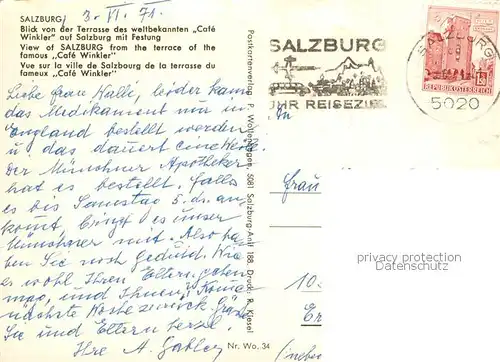 SALZBURG
3. VI. 71.
Blick von der Terrasse des weltbekannten „Café
Winkler" auf Salzburg mit Festung
View of SALZBURG from the terrace of the
famous „Café Winkler"
Vue sur la ville de Salzbourg de la terrasse du
fameux „Café Winkler"
Liebe Frau Kalli, leider kann
das Medikament nur in
England bestellt werden
u das dauert eine Weile.
Der Münchner Apotheker
hat es bestellt. Falls
es bis Samstag 5. ds. an
kommt bringt es unser
Münchner mit. Also haben
Sie noch Geduld. Wie
es wohl Ihren Eltern gehen
mag, und Ihnen? Komme
nächste Woche zurück. Grüße
Sie und Eltern herzl.
Ihre A.
Postkartenverlag P. 5081 Salzburg-Anif 188. Druck: R. Kiesel
Nr. Wo. 34
SALZBURG
UHR REISEZIEL
SALZBURG
5020
REPUBLIK ÖSTERREICH
Frau
privacy protection
10